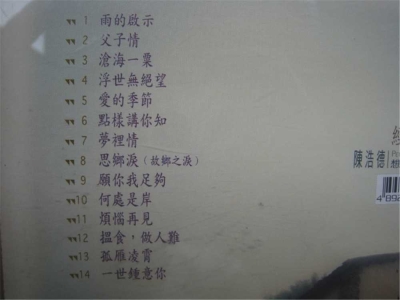 1 雨的啟示
2 父子情
3 滄海一粟
4 浮世無絕望
5 愛的季節
6 點樣講你知
7 夢裡情
8 思鄉淚(故鄉之淚)
9 願你我足夠
10 何處是岸
11 煩惱再見
12 搵食,做人難
13 孤雁凌霄
14 一世鍾意你
陳浩德
4892